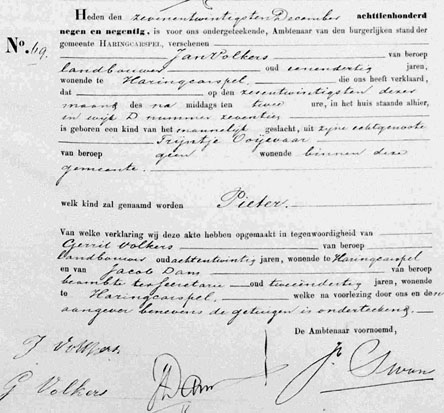 Heden den zevenentwintigsten December achttienhonderd
No. 69. negen en negentig, is voor ons ondergeteekende, Ambtenaar van den burgerlijken stand der
gemeente HARINGCARSPEL, verschenen
Jan Volkers van beroep
landbouwer oud eenendertig jaren,
wonende te Haringcarspel, die ons heeft verklaard,
dat op den zesentwintigsten dezer
maand des na middags ten twee ure, in het huis staande alhier,
en wijk D nummer zeventien
is geboren een kind van het mannelijk geslacht, uit zijne echtgenoote
Trijntje Ooijevaar
van beroep geen wonende binnen deze
gemeente.
welk kind zal genaamd worden Pieter.
Van welke verklaring wij deze akte hebben opgemaakt in tegenwoordigheid van
Gerrit Volkers van beroep
landbouwer oud achtentwintig jaren, wonende te Haringcarspel
en van Jacob Dam van beroep
beambte ter secretarie oud tweeëndertig jaren, wonende
te Haringcarspel. welke na voorlezing door ons en deze
aangever benevens de getuigen is onderteekend.
De Ambtenaar voornoemd,
J. Volkers.
G Volkers
JDam
Swan